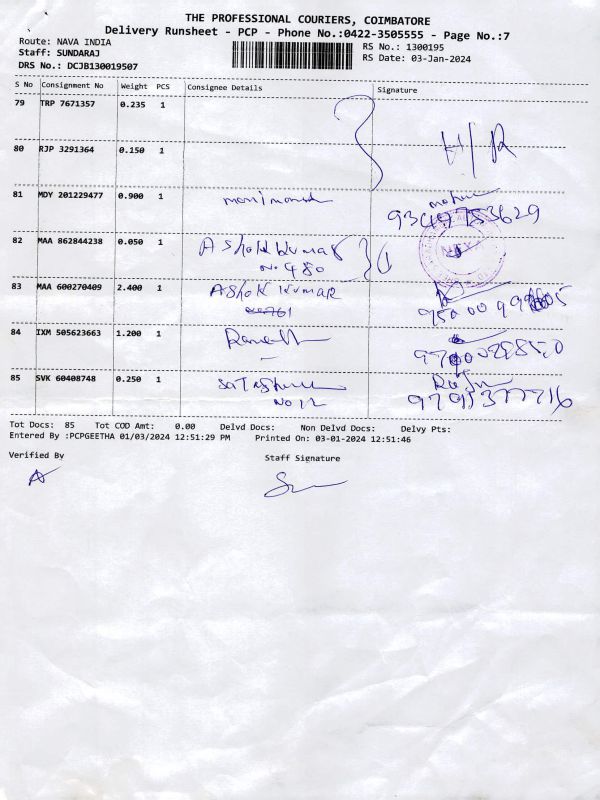 THE PROFESSIONAL COURIERS, COIMBATORE
Delivery Runsheet - PCP - Phone No.:0422-3505555 - Page No.:7
Route: NAVA INDIA
RS No.: 1300195
Staff: SUNDARAJ
RS Date: 03-Jan-2024
DRS No.: DCJB130019507
S No Consignment No Weight PCS Consignee Details Signature
79 TRP 7671357 0.235 1
80 RJP 3291364 0.150 1 H/R
81 MDY 201229477 0.900 1
82 MAA 862844238 0.050 1 Ashok kumar
No 480
83 MAA 600270409 2.400 1 Ashok kumar
84 IXM 505623663 1.200 1
85 SVK 60408748 0.250 1 Raju
No 12 9791377716
Tot Docs: 85 Tot COD Amt: 0.00 Delvd Docs: Non Delvd Docs: Delvy Pts:
Entered By :PCPGEETHA 01/03/2024 12:51:29 PM Printed On: 03-01-2024 12:51:46
Verified By Staff Signature